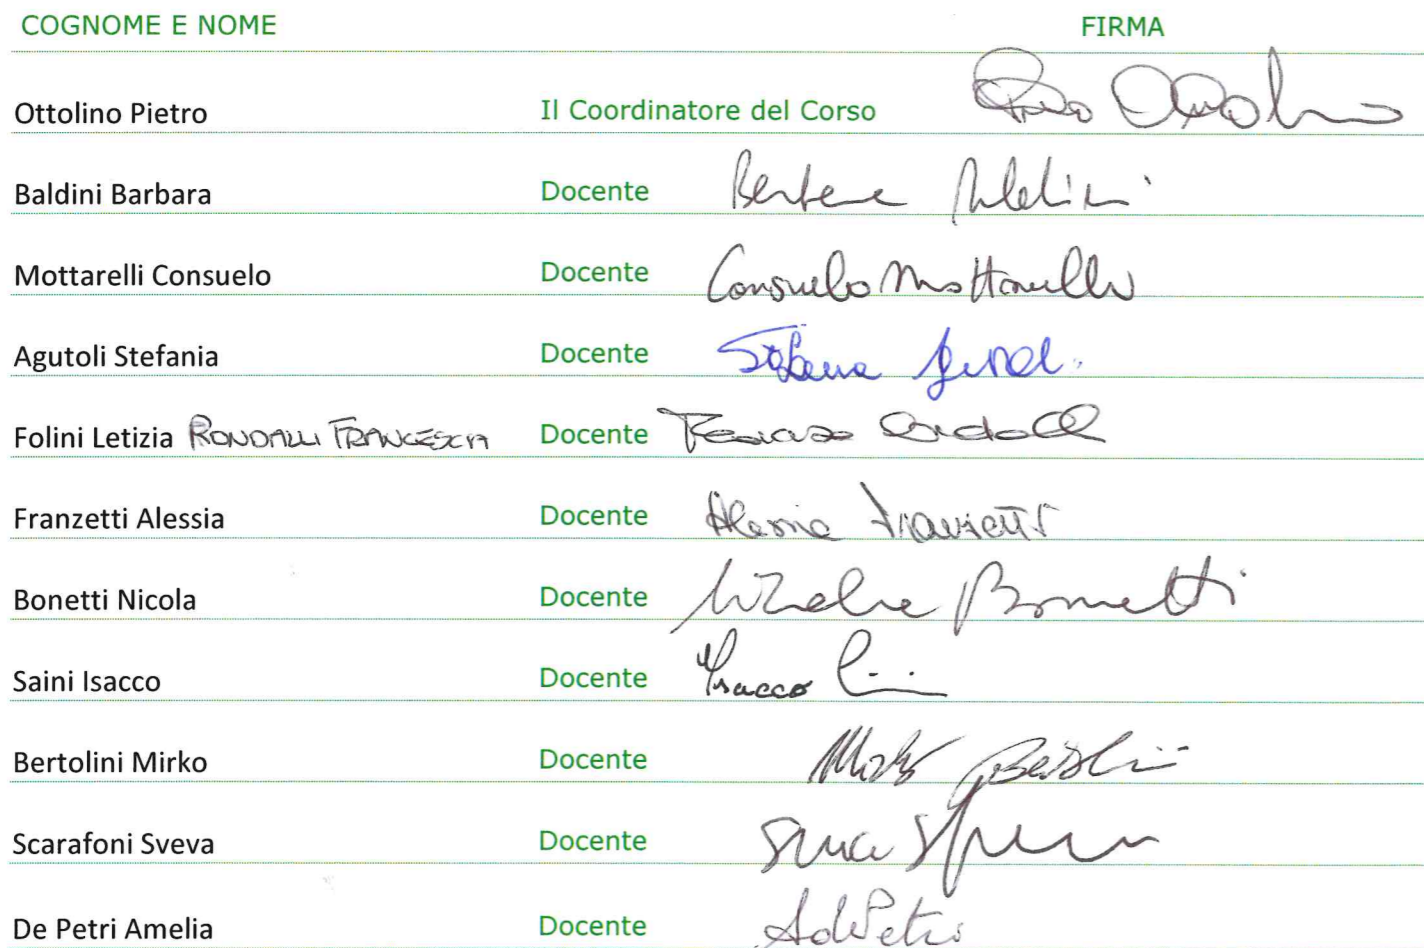 COGNOME E NOME FIRMA
Ottolino Pietro Il Coordinatore del Corso
Baldini Barbara Docente
Mottarelli Consuelo Docente Consuelo Mottarelli
Agutoli Stefania Docente
Folini Letizia RONDALLI FRANCESCA Docente
Franzetti Alessia Docente Alessia Franzetti
Bonetti Nicola Docente Bonetti
Saini Isacco Docente Isacco
Bertolini Mirko Docente Mirko
Scarafoni Sveva Docente
De Petri Amelia Docente A De Petri